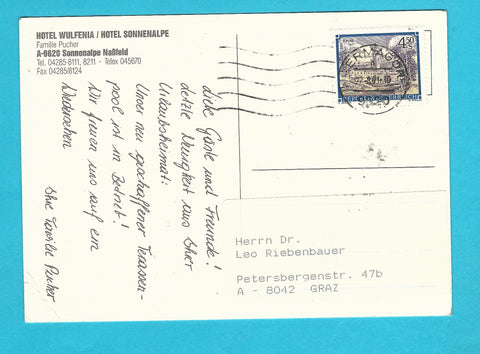 HOTEL WULFENIA / HOTEL SONNENALPE
Familie Pucher
A-9620 Sonnenalpe Naßfeld
Tel. 04285-8111, 8211 - Telex 045670
Fax 04285/8124
Liebe Gäste und Freunde!
Letzte Neuigkeit aus Ihrer
Urlaubsheimat:
Unser neu geschaffener Terassen-
pool ist in Betrieb!
Wir freuen uns auf ein
Wiedersehen
Ihre Familie Pucher
4.50
HERMAGOR
REPUBLIK ÖSTERREICH
Herrn Dr.
Leo Riebenbauer
Petersbergenstr. 47b
A - 8042 GRAZ